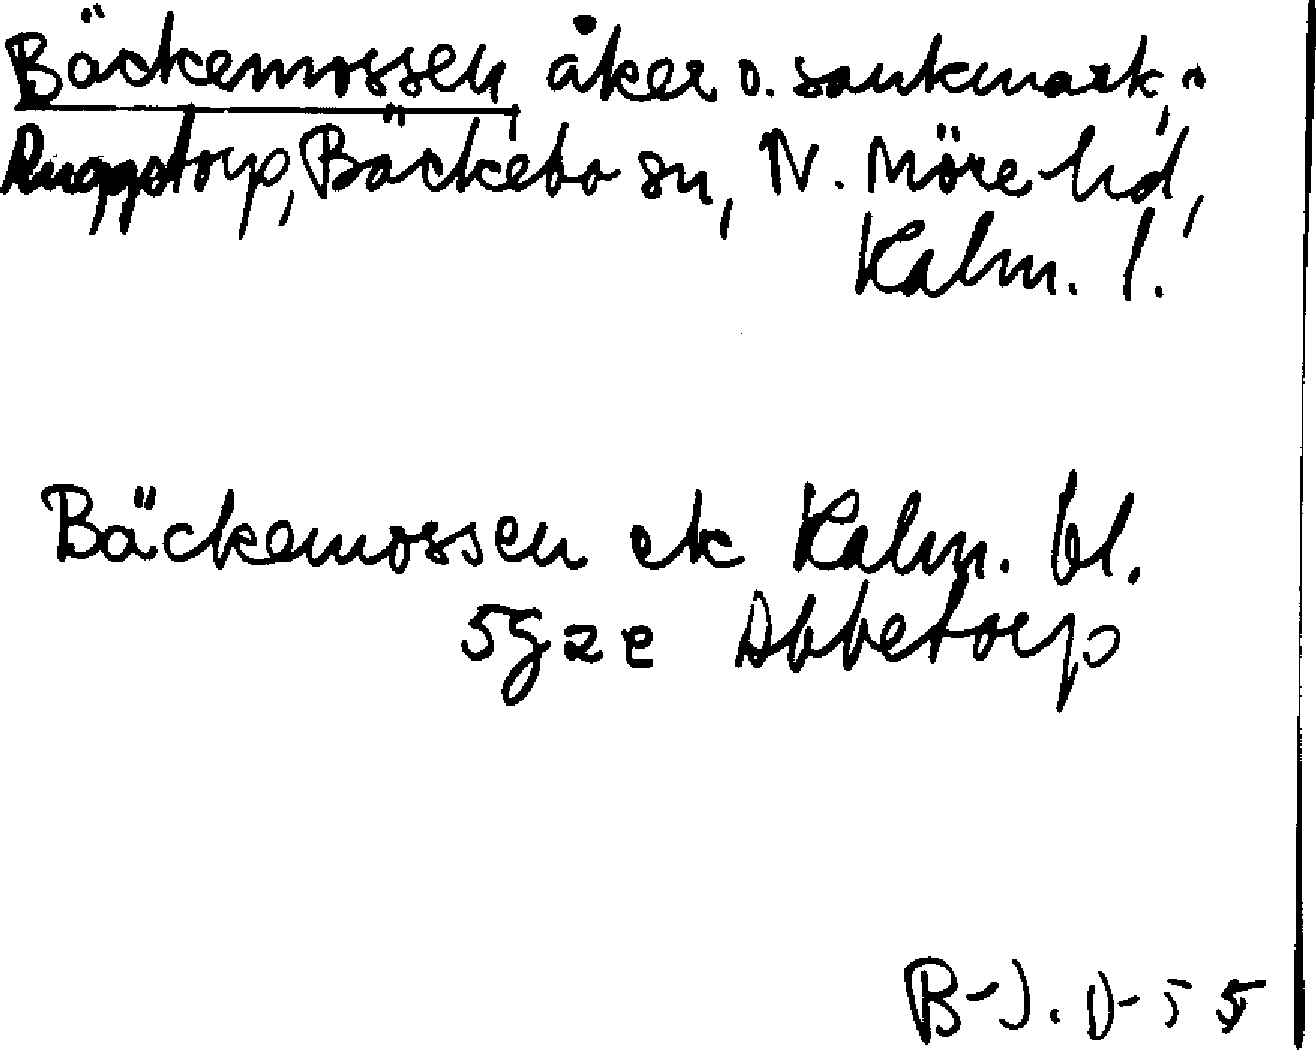 Bäckemossen åker o. sankmark,
Ruggstorp, Bäckebo sn, N. Möre hd,
Kalm. l.
Bäckemossen ek Kalm. bl.
5g2e Abbetorp
B-J. O-55